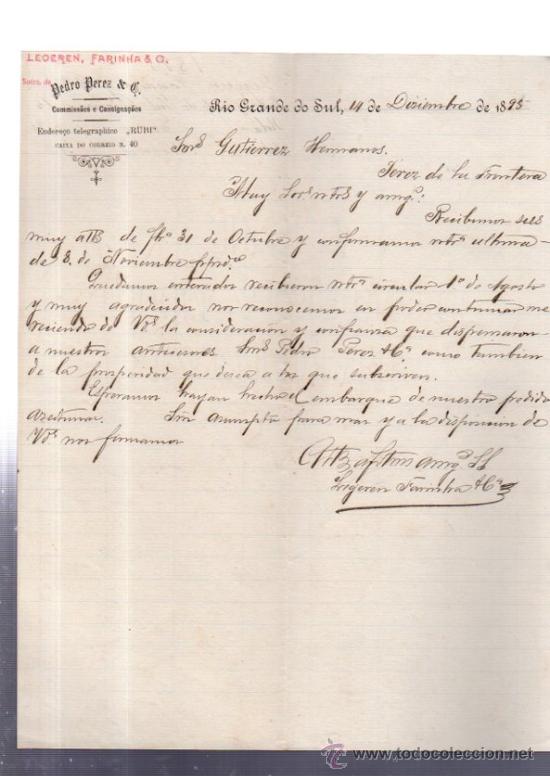 LEOEREN, FARINHA & C.
Sucrs. de
Pedro Perez & C.
Commissões e Consignações
Endereço telegraphico "RUBI"
CAIXA DO CORREIO N. 40
Rio Grande do Sul, 14 de Diziembre de 1895
Sores Gutierrez Hermanos.
Jerez de la Frontera
Muy Sores ntros y amigos:
Recibimos sus
muy atts de fha 31 de Octubre y confirmamos ntra ultima
de 8 de Noviembre ppdo.
Quedamos enterados recibieron ntra circular 1o de Agosto
y muy agradecidos nos reconocemos en poder continuar me
reciendo de Vds la consideracion y confianza que dispensaron
a nuestros antecesores Sores Pedro Perez & Ca como tambien
de la prosperidad que desea a los que subscriven.
Esperamos hayan hecho el embarque de nuestro pedido
azeitunas. Sin asumpto para mas y a la disposicion de
Vds nos firmamos
amigos SS
Leogeren Farinha & Ca
todocoleccion